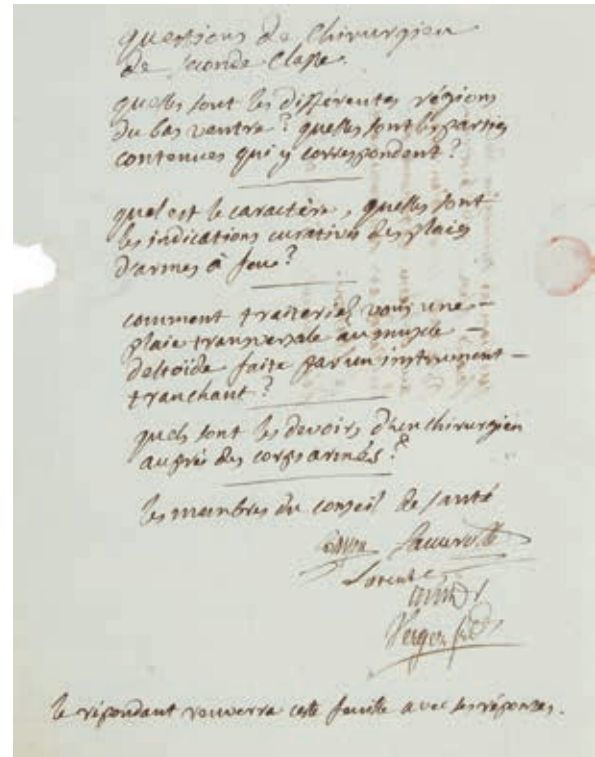 questions de Chirurgien
de seconde Classe.
quelles sont les différentes régions
du bas ventre? quelles sont les parties
contenues qui y correspondent?
quel est le caractère, quelles sont
les indications curatives des plaies
d'armes à feu?
comment traiteriez vous une
plaie transversale au muscle
deltoïde faite par un instrument
tranchant?
quels sont les devoirs d'un chirurgien
auprès des corps armés?
les membres du conseil de santé
le répondant renverra cette feuille avec ses réponses.